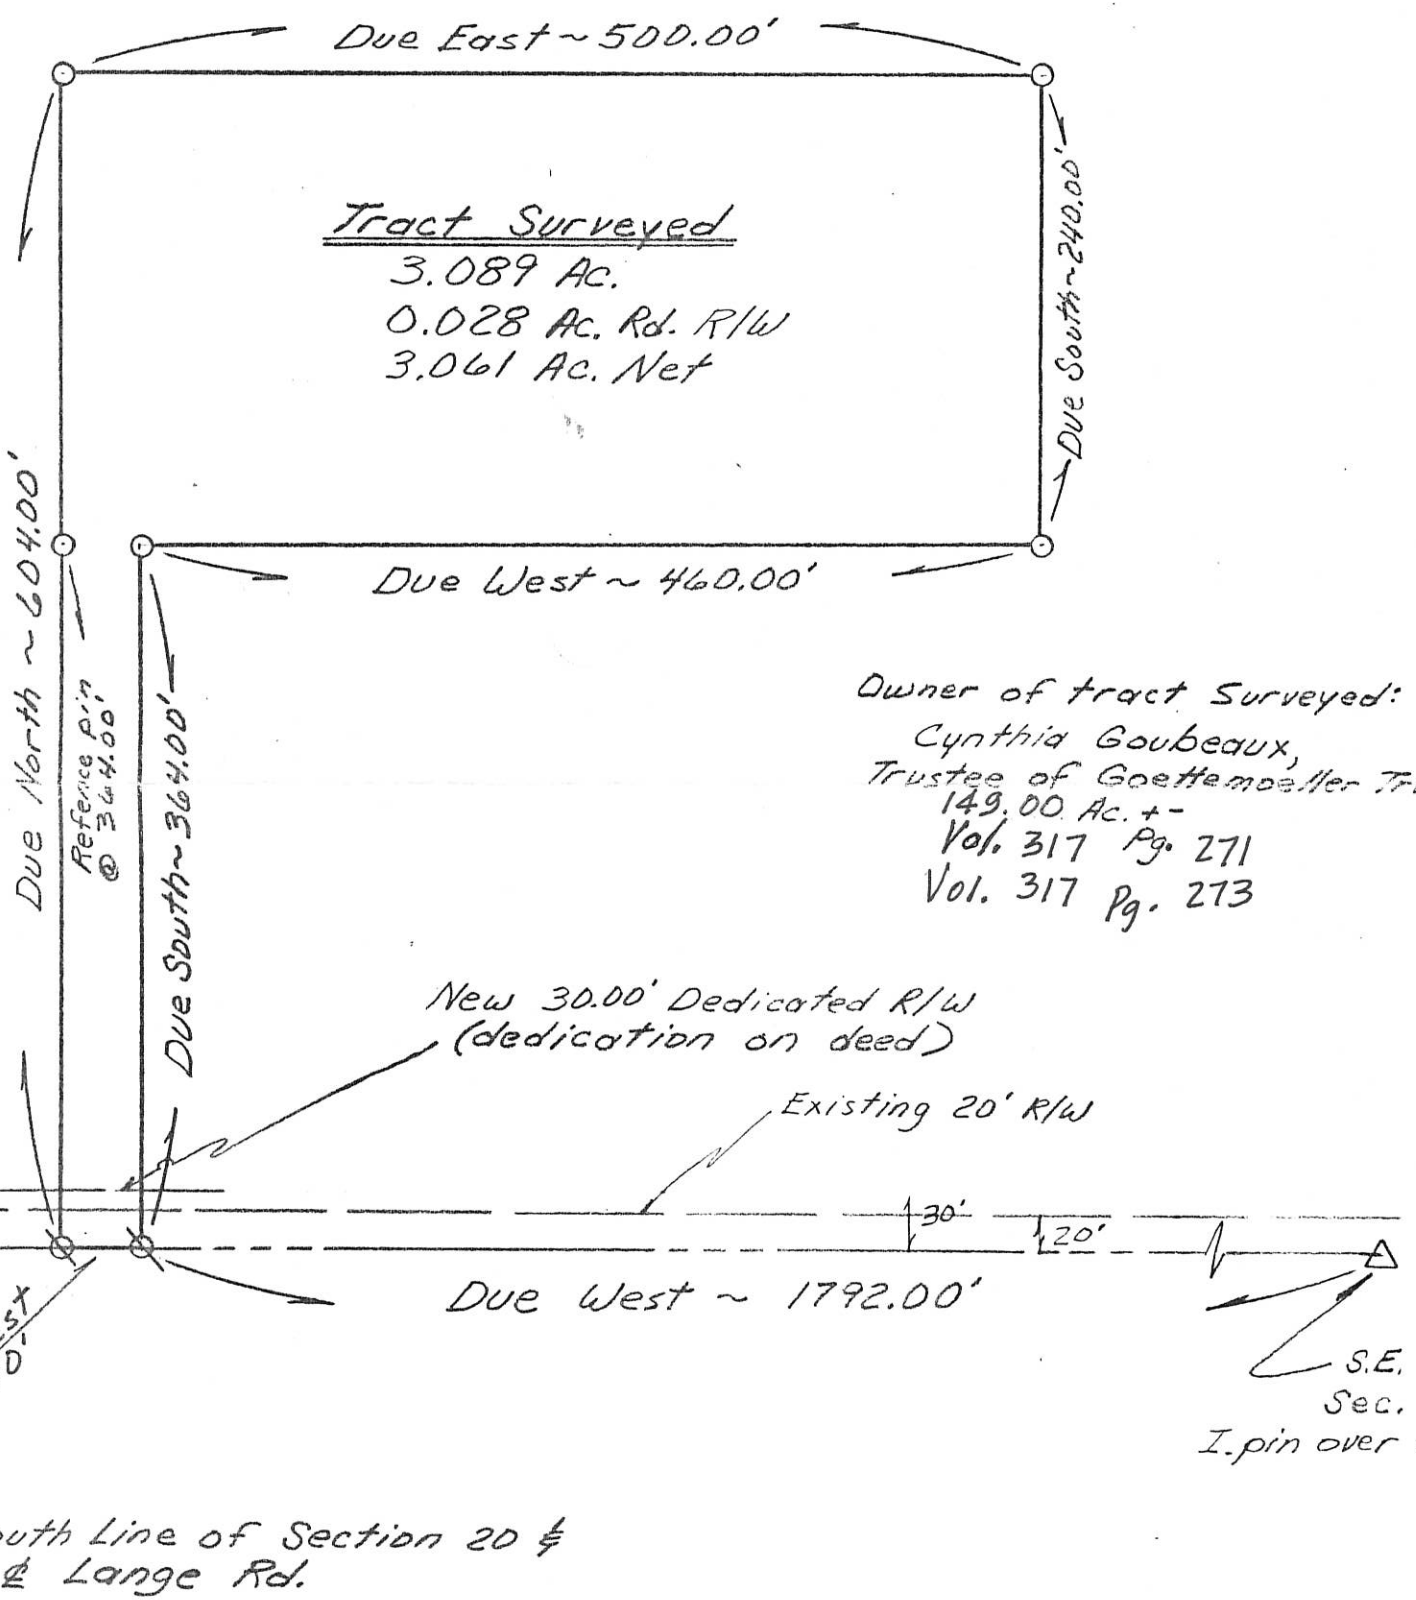 Due East ~ 500.00'
Due South ~ 240.00'
Tract Surveyed
3.089 Ac.
0.028 Ac. Rd. R/W
3.061 Ac. Net
Due North ~ 604.00'
Due West ~ 460.00'
Refence pin
@ 364.00'
Due South ~ 364.00'
Owner of tract Surveyed:
Cynthia Goubeaux,
Trustee of Goettemoeller Tr
149.00 Ac. +-
Vol. 317 Pg. 271
Vol. 317 Pg. 273
New 30.00' Dedicated R/W
(dedication on deed)
Existing 20' R/W
30'
20'
Due West ~ 1792.00'
st
0'
S.E.
Sec.
I. pin over
outh Line of Section 20 &
℄ Lange Rd.